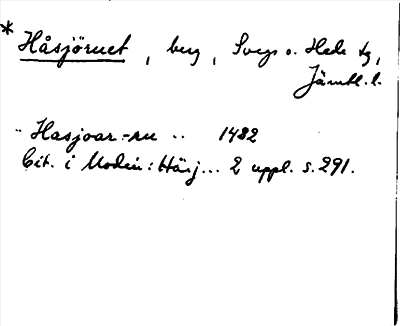 * Håsjöruet, berg, Svegs o. Hede tg,
Jämtl. l.
" Hasjoar-ru " 1482
Cit. i Modin: Härj... 2 uppl. s. 291.